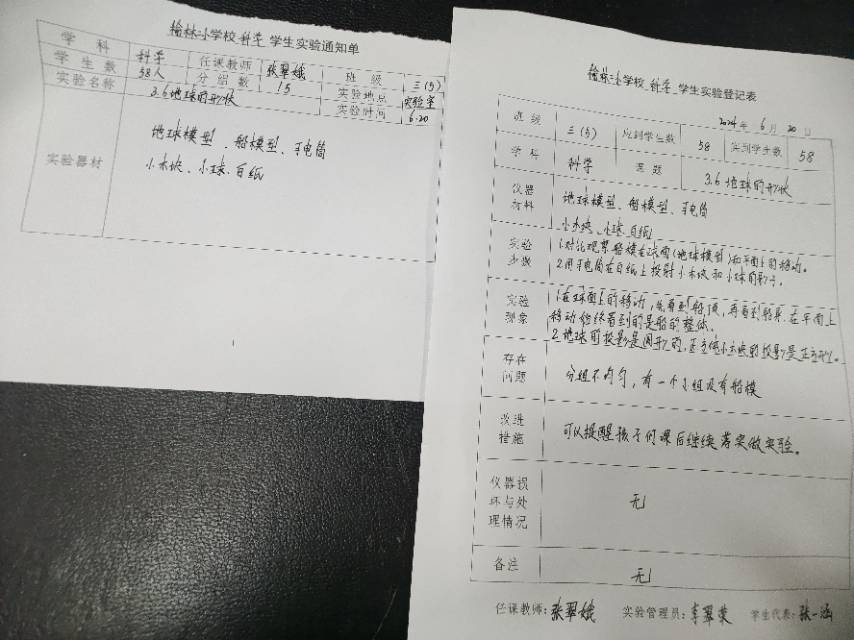 榆林小学校科学学生实验通知单
学科 科学 任课教师 张翠娥 班级 三(5)
学生数 58人 分组数 15 实验地点 实验室
实验名称 3.6地球的形状 实验时间 6.20
实验器材
地球模型、船模型、手电筒
小木块、小球、白纸
1
榆林小学校科学学生实验登记表
2024年6月20日
班级 三(5) 应到学生数 58 实到学生数 58
学科 科学 课题 3.6地球的形状
仪器材料
地球模型、船模型、手电筒
小木块、小球、白纸
实验步骤
1.对比观察船模在球面(地球模型)和平面上的移动。
2.用手电筒在白纸上投射小木块和小球的影子。
实验现象
1.在球面上的移动,先看到船顶,再看到船身,在平面上
移动始终看到的是船的整体。
2.地球的投影是圆形的,正方体小木块的投影是正方形。
存在问题
分组不均匀,有一个小组没有船模
改进措施
可以提醒孩子们课后继续落实做实验。
仪器损坏与处理情况
无
备注
无
任课教师:张翠娥 实验管理员:李翠荣 学生代表:张一涵